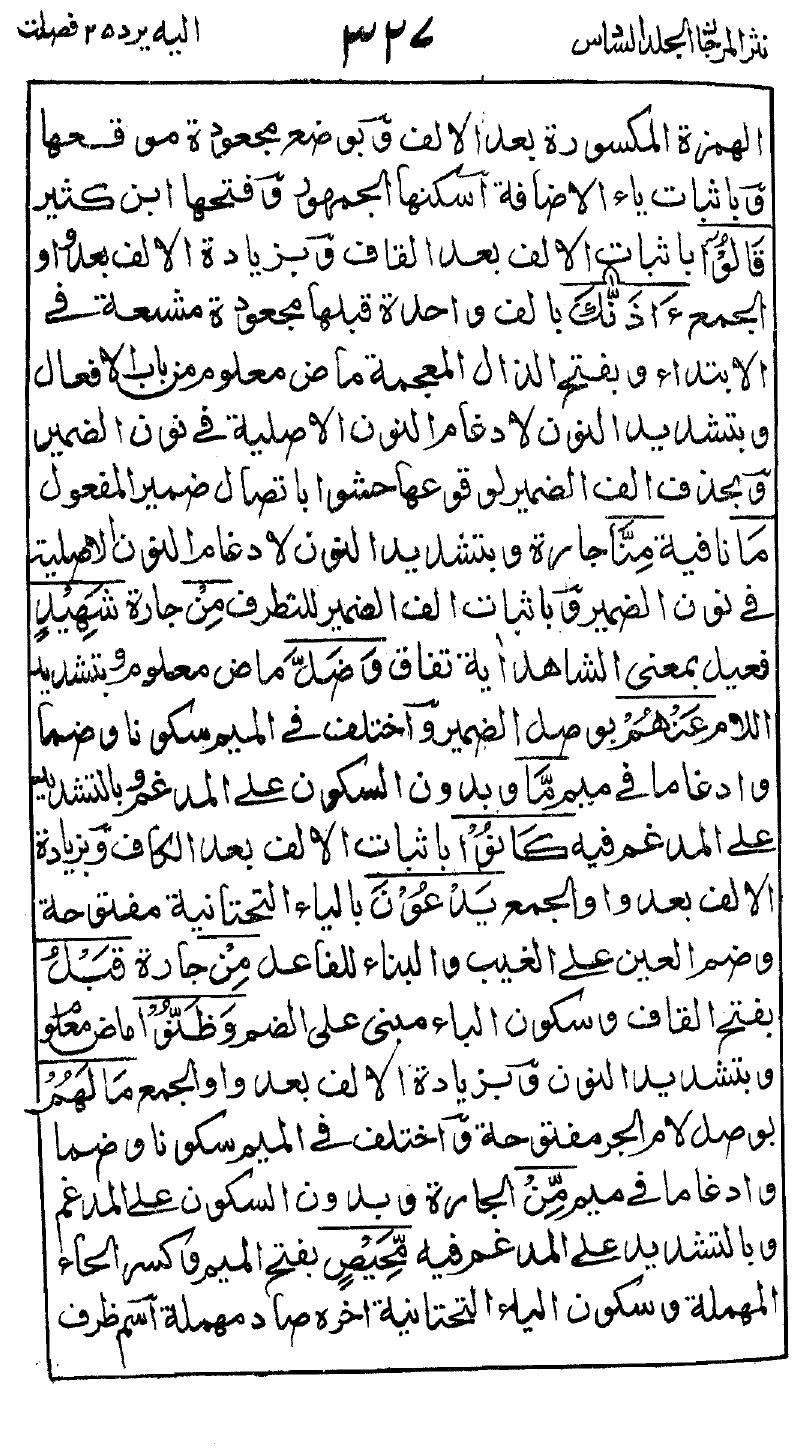 نثر المرجان المجلد السادس ٣٢٧ اليه يرد ٢٥ فصلت
الهمزة المكسورة بعد الالف وبوضع مجعودة موقعها
وباثبات ياء الاضافة اسكنها الجمهور وفتحها ابن كثير
قَالُوْٓا باثبات الالف بعد القاف وبزيادة الالف بعد واو
الجمع ءَاذَنّٰكَ بالف واحدة قبلها مجعودة مشبعة في
الابتداء وبفتح الذال المعجمة ماض معلوم من باب الافعال
وبتشديد النون لادغام النون الاصلية في نون الضمير
وبحذف الف الضمير لوقوعها حشوا باتصال ضمير المفعول
مَا نافية مِنَّا جارة وبتشديد النون لادغام النون الاصلية
في نون الضمير وباثبات الف الضمير للتطرف مِنْ جارة شَهِيْدٍ
فعيل بمعنى الشاهد اٰية تفاق وَضَلَّ ماض معلوم وبتشديد
اللام عَنْهُمْ بوصل الضمير واختلف في الميم سكونا وضما
وادغاما في ميم مَّا وبدون السكون على المدغم وبالتشديد
على المدغم فيه كَانُوْا باثبات الالف بعد الكاف وبزيادة
الالف بعد واو الجمع يَدْعُوْنَ بالياء التحتانية مفتوحة
وضم العين على الغيب والبناء للفاعل مِنْ جارة قَبْلُ
بفتح القاف وسكون الباء مبنى على الضم وَظَنُّوْا ماض معلوم
وبتشديد النون وبزيادة الالف بعد واو الجمع مَا لَهُمْ
بوصل لام الجر مفتوحة واختلف في الميم سكونا وضما
وادغاما في ميم مِّنْ الجارة وبدون السكون على المدغم
وبالتشديد على المدغم فيه مَّحِيْصٍ بفتح الميم وكسر الحاء
المهملة وسكون الياء التحتانية اخره صاد مهملة اسم ظرف